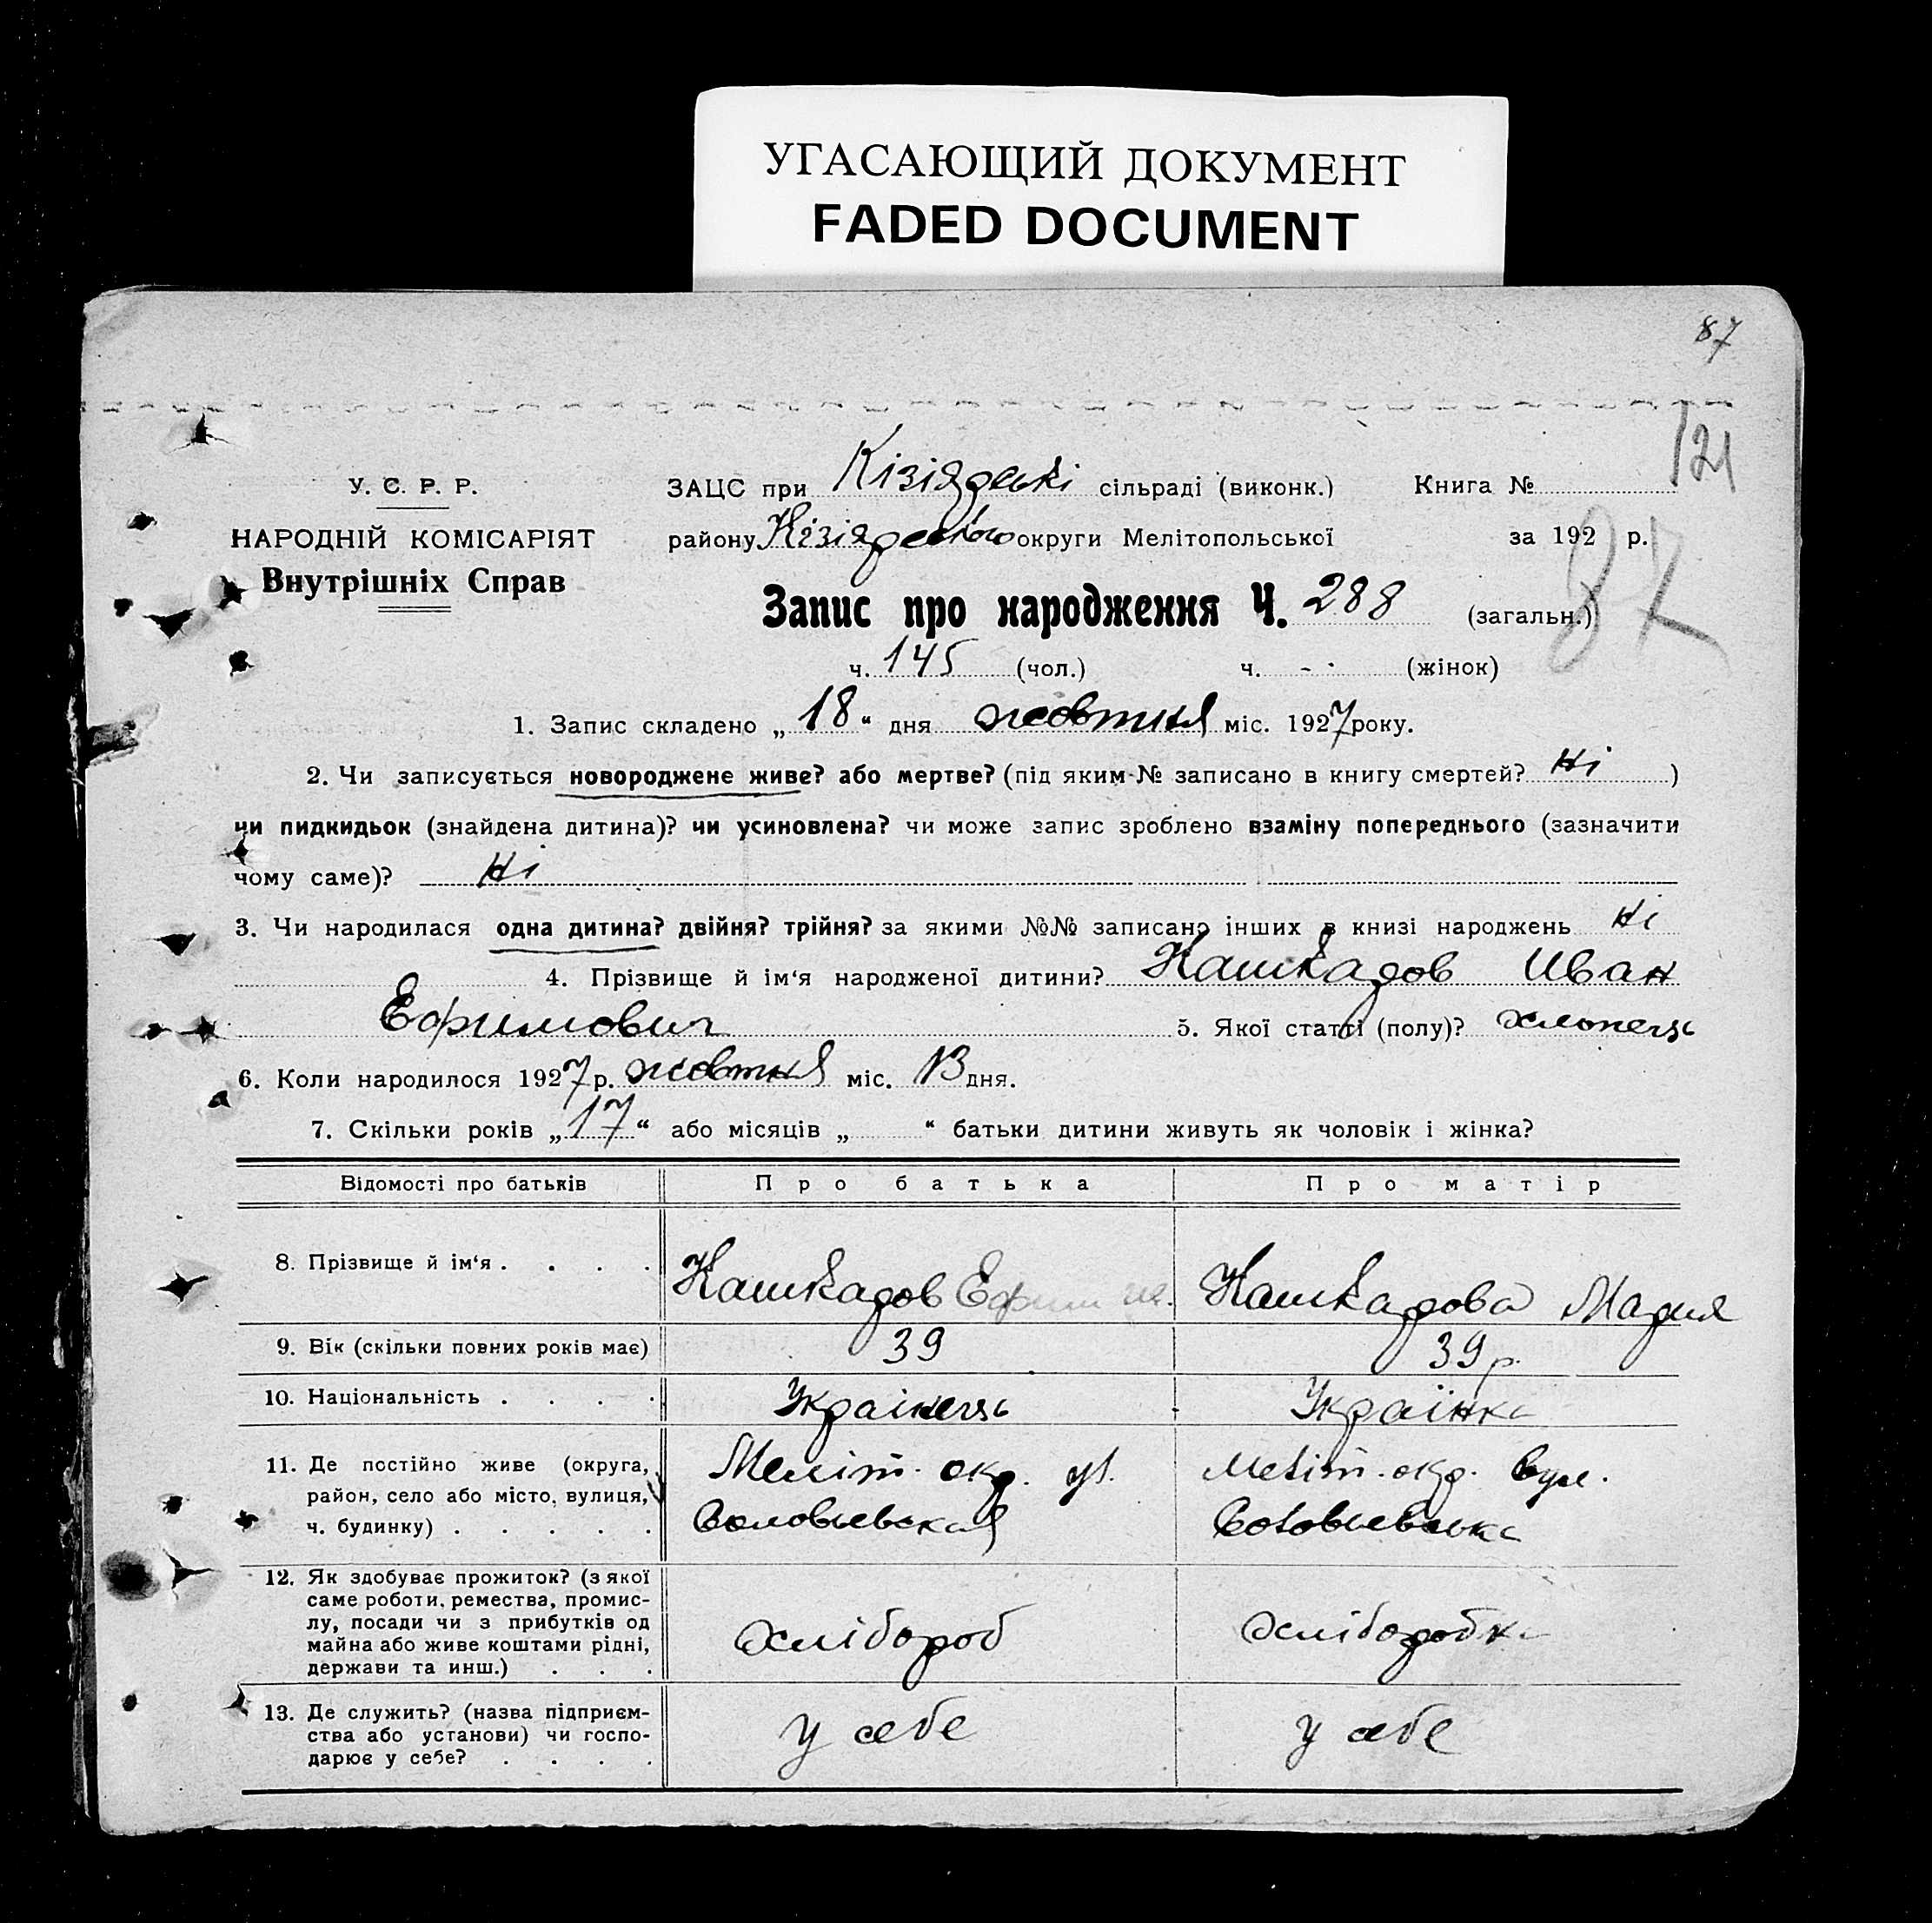 УГАСАЮЩИЙ ДОКУМЕНТ
FADED DOCUMENT
87
121
У. С. Р. Р.
НАРОДНІЙ КОМІСАРІЯТ
Внутрішніх Справ
ЗАЦС при Кізіярські сільраді (виконк.) Книга №
району Кізіярсьkого округи Мелітопольської за 192 р.
87
Запис про народження Ч. 288 (загальн.)
ч. 145 (чол.) ч. - · (жінок)
1. Запис складено „18“ дня жовтня міс. 1927 року.
2. Чи записується новороджене живе? або мертве? (під яким № записано в книгу смертей? Ні )
чи пидкидьок (знайдена дитина)? чи усиновлена? чи може запис зроблено взаміну попереднього (зазначити
чому саме)? Ні
3. Чи народилася одна дитина? двійня? трійня? за якими №№ записано інших в книзі народжень Ні
4. Прізвище й ім‘я народженої дитини? Кашкадов Иван
Ефимович 5. Якої статті (полу)? хлопець
6. Коли народилося 1927 р. жовтня міс. 13 дня.
7. Скільки років „17“ або місяців „ “ батьки дитини живуть як чоловік і жінка?
Відомості про батьків Про батька Про матір
8. Прізвище й ім‘я . . . . Кашкадов Ефим Кашкадова Мария
9. Вік (скільки повних років має) 39 39 р.
10. Національність . . . . Українець Українка
11. Де постійно живе (округа, район, село або місто, вулиця, ч. будинку) . . . . . Меліт. окр. ул. Соловьевская Меліт. окр. вул. Соловьевська
12. Як здобуває прожиток? (з якої саме роботи, ремества, промислу, посади чи з прибутків од майна або живе коштами рідні, держави та инш.) . . . хлібороб хліборобка
13. Де служить? (назва підприємства або установи) чи господарює у себе? . . . . у себе у себе